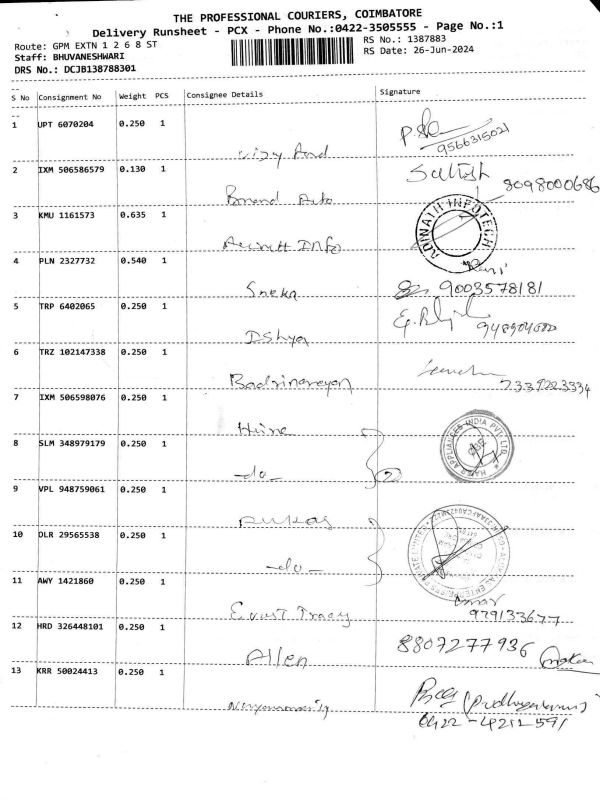 THE PROFESSIONAL COURIERS, COIMBATORE
Delivery Runsheet - PCX - Phone No.:0422-3505555 - Page No.:1
Route: GPM EXTN 1 2 6 8 ST
RS No.: 1387883
Staff: BHUVANESHWARI
RS Date: 26-Jun-2024
DRS No.: DCJB138788301
S No Consignment No Weight PCS Consignee Details Signature
1 UPT 6070204 0.250 1
9566315021
2 IXM 506586579 0.130 1
Satish 8098000686
3 KMU 1161573 0.635 1
ADINATH INFOTECH
Info
4 PLN 2327732 0.540 1
Sneka 9003578181
5 TRP 6402065 0.250 1
6 TRZ 102147338 0.250 1
Badrinarayan
7 IXM 506598076 0.250 1
APPLIANCES INDIA PVT. LTD.
CBE
8 SLM 348979179 0.250 1
-do- 2
9 VPL 948759061 0.250 1
10 DLR 29565538 0.250 1
-do-
11 AWY 1421860 0.250 1
979133677
12 HRD 326448101 0.250 1
Allen 8807277936
13 KRR 50024413 0.250 1
0422-4212591